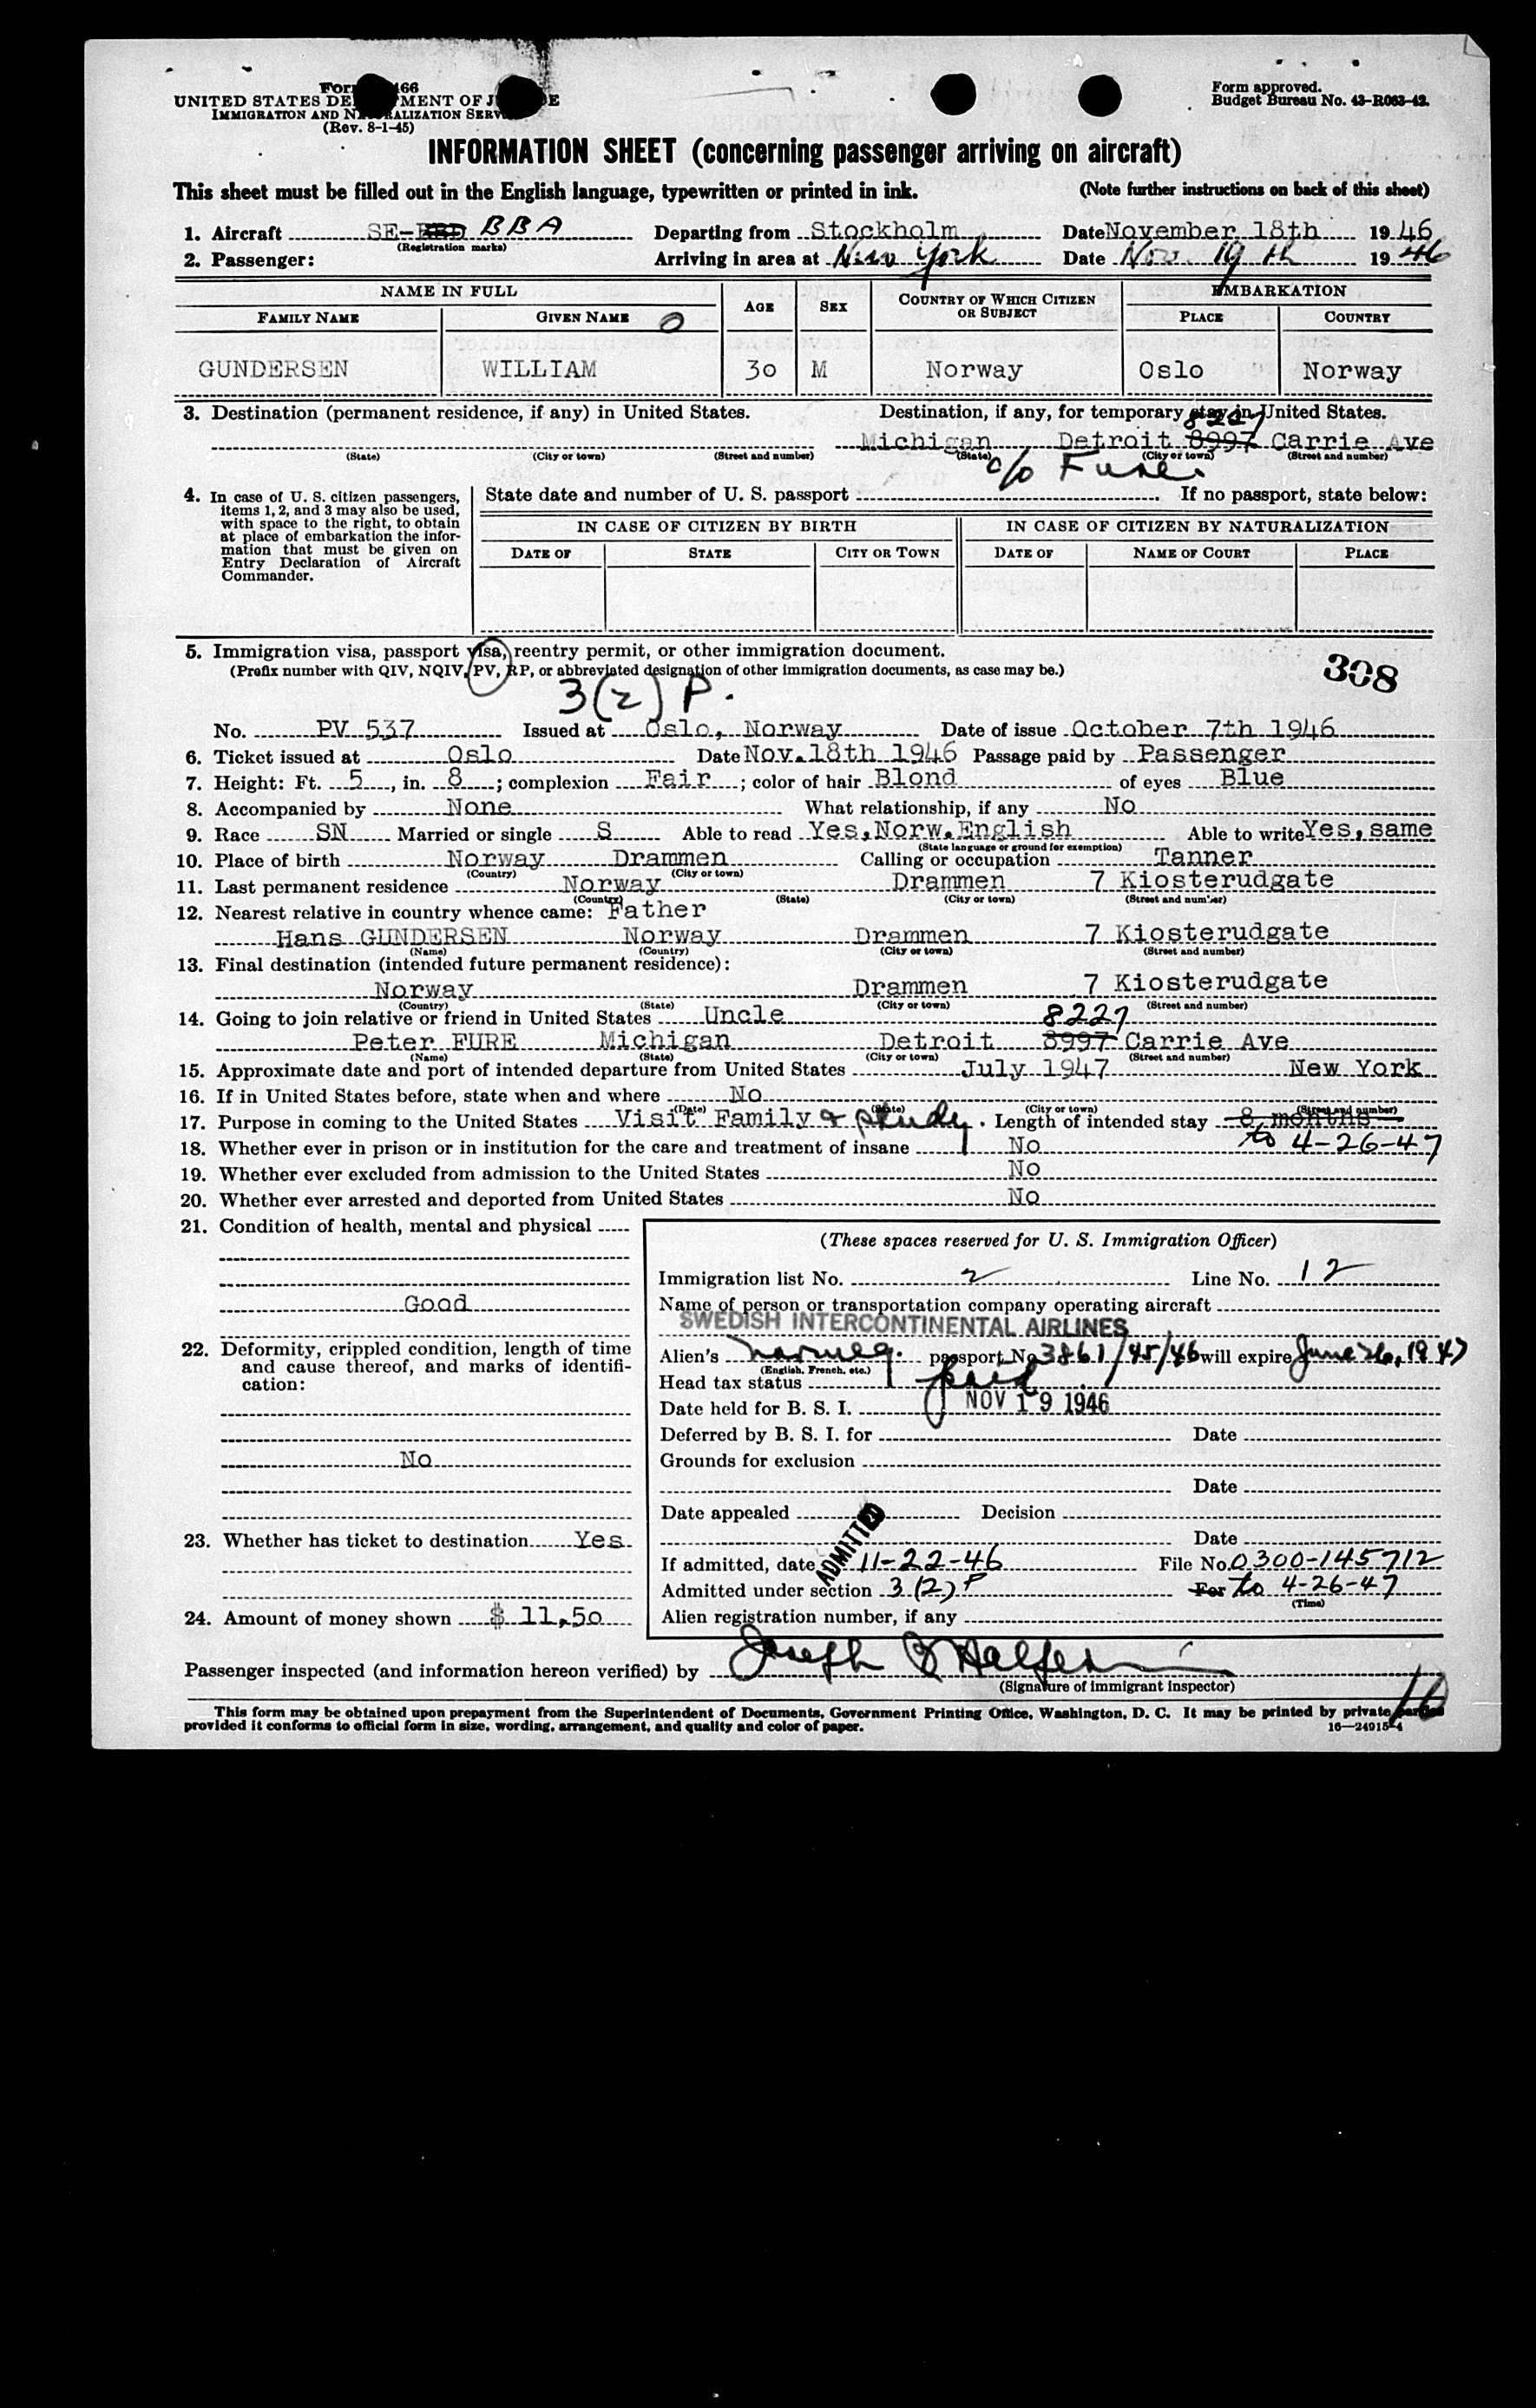 Form 466
UNITED STATES DEPARTMENT OF JUSTICE
IMMIGRATION AND NATURALIZATION SERVICE
(Rev. 8-1-45)
Form approved.
Budget Bureau No. 43-R063-42.
INFORMATION SHEET (concerning passenger arriving on aircraft)
This sheet must be filled out in the English language, typewritten or printed in ink. (Note further instructions on back of this sheet)
1. Aircraft SE- BBA Departing from Stockholm Date November 18th 1946
(Registration marks)
2. Passenger: Arriving in area at New York Date Nov. 19th 1946
NAME IN FULL AGE SEX COUNTRY OF WHICH CITIZEN OR SUBJECT EMBARKATION
FAMILY NAME GIVEN NAME PLACE COUNTRY
GUNDERSEN WILLIAM 30 M Norway Oslo Norway
3. Destination (permanent residence, if any) in United States. Destination, if any, for temporary stay in United States.
8227
Michigan Detroit 8997 Carrie Ave
(State) (City or town) (Street and number) (State) (City or town) (Street and number)
c/o Fure.
4. In case of U. S. citizen passengers, items 1, 2, and 3 may also be used, with space to the right, to obtain at place of embarkation the information that must be given on Entry Declaration of Aircraft Commander.
State date and number of U. S. passport If no passport, state below:
IN CASE OF CITIZEN BY BIRTH IN CASE OF CITIZEN BY NATURALIZATION
DATE OF STATE CITY OR TOWN DATE OF NAME OF COURT PLACE
5. Immigration visa, passport visa, reentry permit, or other immigration document.
(Prefix number with QIV, NQIV, PV, RP, or abbreviated designation of other immigration documents, as case may be.)
308
3(2) P.
No. PV 537 Issued at Oslo, Norway Date of issue October 7th 1946
6. Ticket issued at Oslo Date Nov.18th 1946 Passage paid by Passenger
7. Height: Ft. 5, in. 8; complexion Fair; color of hair Blond of eyes Blue
8. Accompanied by None What relationship, if any No
9. Race SN Married or single S Able to read Yes,Norw.English Able to write Yes,same
(State language or ground for exemption)
10. Place of birth Norway Drammen Calling or occupation Tanner
(Country) (City or town)
11. Last permanent residence Norway Drammen 7 Kiosterudgate
(Country) (State) (City or town) (Street and number)
12. Nearest relative in country whence came: Father
Hans GUNDERSEN Norway Drammen 7 Kiosterudgate
(Name) (Country) (City or town) (Street and number)
13. Final destination (intended future permanent residence):
Norway Drammen 7 Kiosterudgate
(Country) (State) (City or town) (Street and number)
14. Going to join relative or friend in United States Uncle 8227
Peter FURE Michigan Detroit 8997 Carrie Ave
(Name) (State) (City or town) (Street and number)
15. Approximate date and port of intended departure from United States July 1947 New York
16. If in United States before, state when and where No
(Date) (State) (City or town) (Street and number)
17. Purpose in coming to the United States Visit Family & study. Length of intended stay 8 months
to 4-26-47
18. Whether ever in prison or in institution for the care and treatment of insane No
19. Whether ever excluded from admission to the United States No
20. Whether ever arrested and deported from United States No
21. Condition of health, mental and physical
Good
22. Deformity, crippled condition, length of time and cause thereof, and marks of identification:
No
23. Whether has ticket to destination Yes
24. Amount of money shown $ 11,50
(These spaces reserved for U. S. Immigration Officer)
Immigration list No. 2 Line No. 12
Name of person or transportation company operating aircraft
SWEDISH INTERCONTINENTAL AIRLINES
Alien's Norweg. passport No. 3861/45/46 will expire June 26, 1947
(English, French, etc.)
Head tax status paid
Date held for B. S. I. NOV 19 1946
Deferred by B. S. I. for Date
Grounds for exclusion
Date
Date appealed Decision
Date
ADMITTED
If admitted, date 11-22-46 File No. 0300-145712
Admitted under section 3(2) P For to 4-26-47
(Time)
Alien registration number, if any
Passenger inspected (and information hereon verified) by Joseph
(Signature of immigrant inspector)
16
This form may be obtained upon prepayment from the Superintendent of Documents, Government Printing Office, Washington, D. C. It may be printed by private parties
provided it conforms to official form in size, wording, arrangement, and quality and color of paper. 16—24915-4